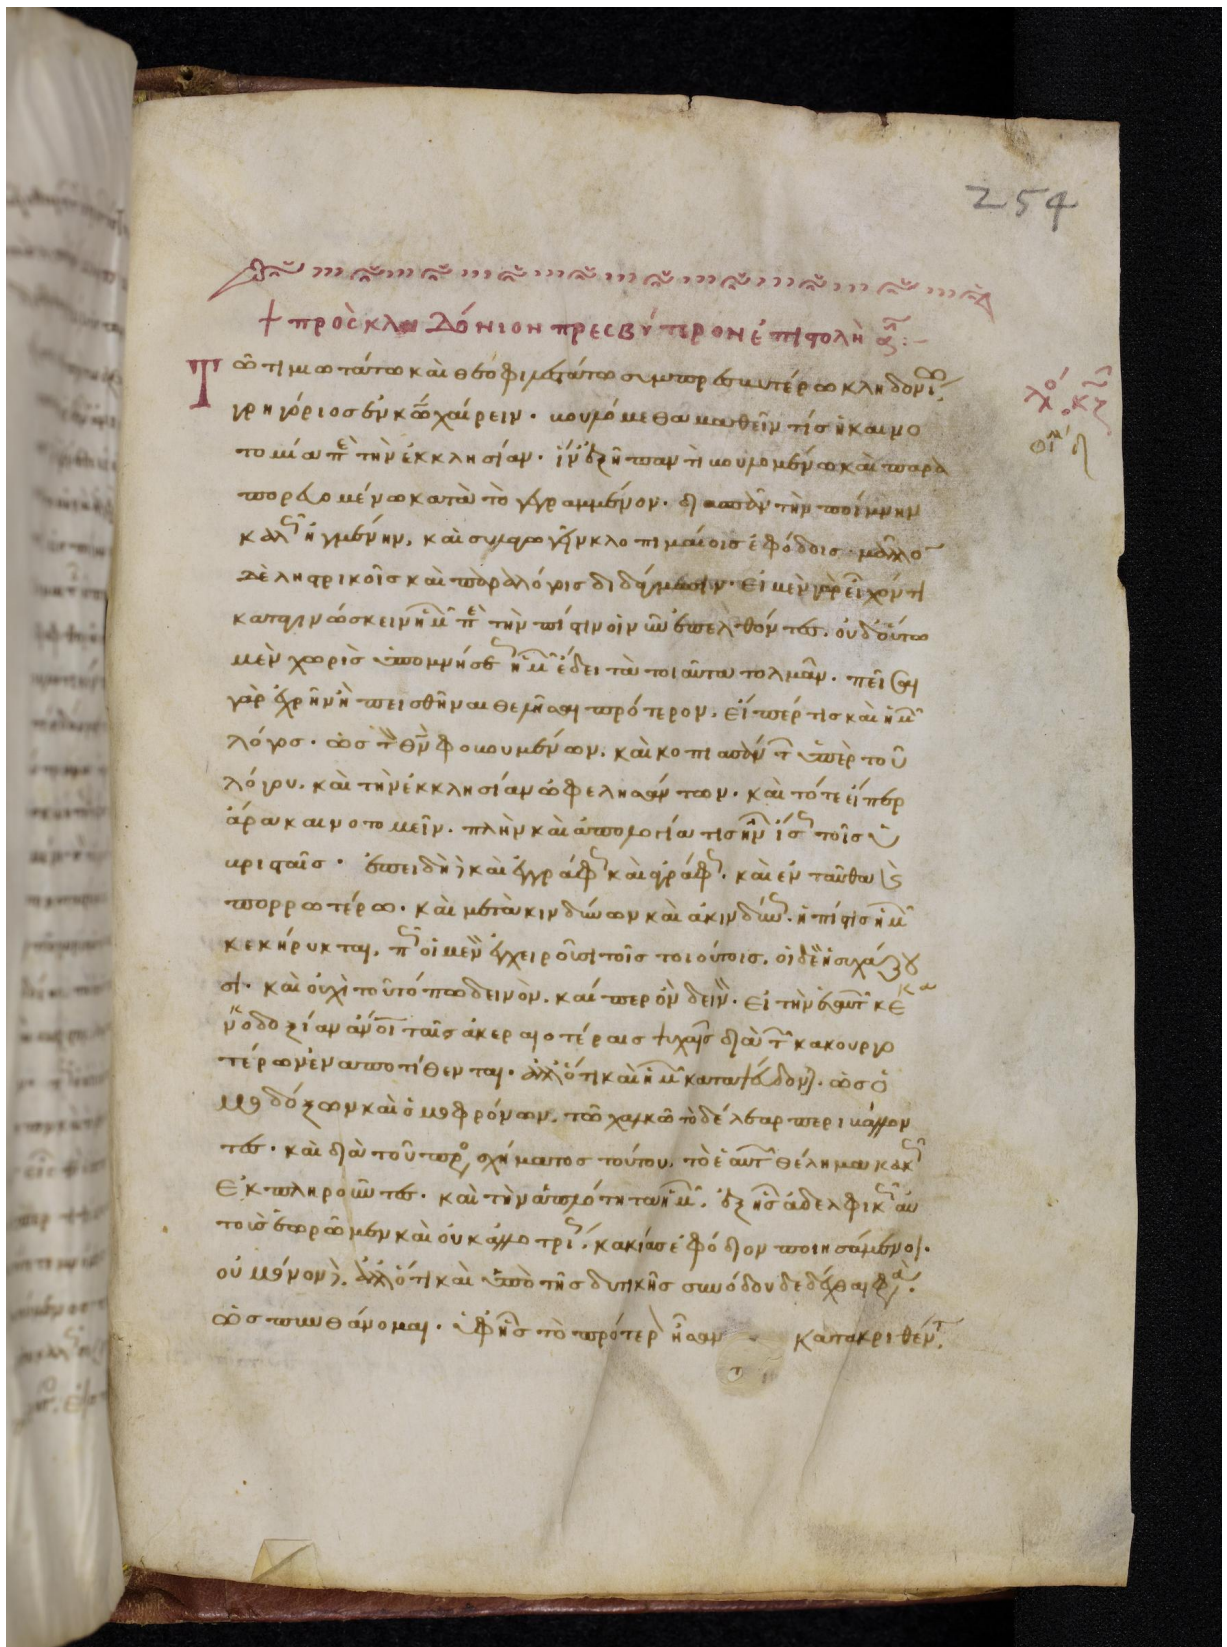 254
+ πρὸς κληδόνιον πρεσβύτερον ἐπιστολὴ α:-
Τῶ τιμιωτάτω καὶ θεοφιλεστάτω συμπρεσβυτέρω κληδονίω,
γρηγόριος ἐν κω χαίρειν. βουλόμεθα μαθεῖν τίς ἡ καινο
τομία π τὴν ἐκκλησίαν. ἵν ἐξῆ παντὶ βουλομένω καὶ παρα
πορευομένω κατὰ τὸ γεγραμμένον. διασπᾶν τὴν ποίμνην
καλ ἠγμένην, καὶ συλᾶν κλοπιμαίοις ἐφόδοις. μᾶλλο
δὲ ληστρικοῖς καὶ παραλόγοις διδάγμασιν. εἰ μὲν γὰρ εἶχόν τι
καταγινώσκειν ἡμ π τὴν πίστιν οἱ νῦν ἐπελθόντες. οὐδ οὕτω
μὲν χωρὶς ὑπομνήσε ἡμ ἔδει τὰ τοιαῦτα τολμᾶν. πεῖσαι
γὰρ ἐχρῆν ἢ πεισθῆναι θελῆσαι πρότερον. εἴπέρ τις καὶ ἡμ
λόγος. ὡς τ θν φοβουμένων. καὶ κοπιασάν τ ὑπὲρ τοῦ
λόγου. καὶ τὴν ἐκκλησίαν ὠφελησάντων. καὶ τότε εἴπερ
ἄρα καινοτομεῖν. πλὴν καὶ ἀπολογία τις ἦν ἴσ τοῖς ὑ
βρισταῖς. ἐπειδὴ καὶ ἐγγράφ καὶ ἀγράφ. καὶ ἐνταῦθα καὶ
πορρωτέρω. καὶ μετὰ κινδύνων καὶ ἀκινδύν. ἡ πίστις ἡμ
κεκήρυκται. π οἱ μὲν ἐγχειροῦσι τοῖς τοιούτοις. οἱ δὲ ἡσυχάζου
σι. καὶ οὐχὶ τοῦτό πω δεινὸν. καίπερ ὂν δεινὸν. εἰ τὴν ἑαυτ κε
νοδοξίαν ἀνοι ταῖς ἀκεραιοτέραις ψυχαῖς διὰ τ κακουργο
τέρων ἐναποτίθενται. ἀλλ ὅτι καὶ ἡμ καταψεύδον. ὡς ὁ
μοδόξων καὶ ὁμοφρόνων. τῶ χαλκῶ τὸ δέλεαρ περιβάλλον
τες. καὶ διὰ τοῦ προσχήματος τούτου, τὸ ἑαυτ θέλημα κακ
ἐκπληροῦντες. καὶ τὴν ἁπλότητα ἡμ. ἐξ ἧς ἀδελφικ αὐ
τοὺς ἑωρῶμεν καὶ οὐκ ἀλλοτρί, κακίας ἐφόδιον ποιησάμενοι.
οὐ μόνον, ἀλλ ὅτι καὶ ὑπὸ τῆς δυτικῆς συνόδου δεδέχθαι φα.
ὡς πυνθάνομαι. ὑφ ἧς τὸ πρότερ ἦσαν κατακριθέντ.